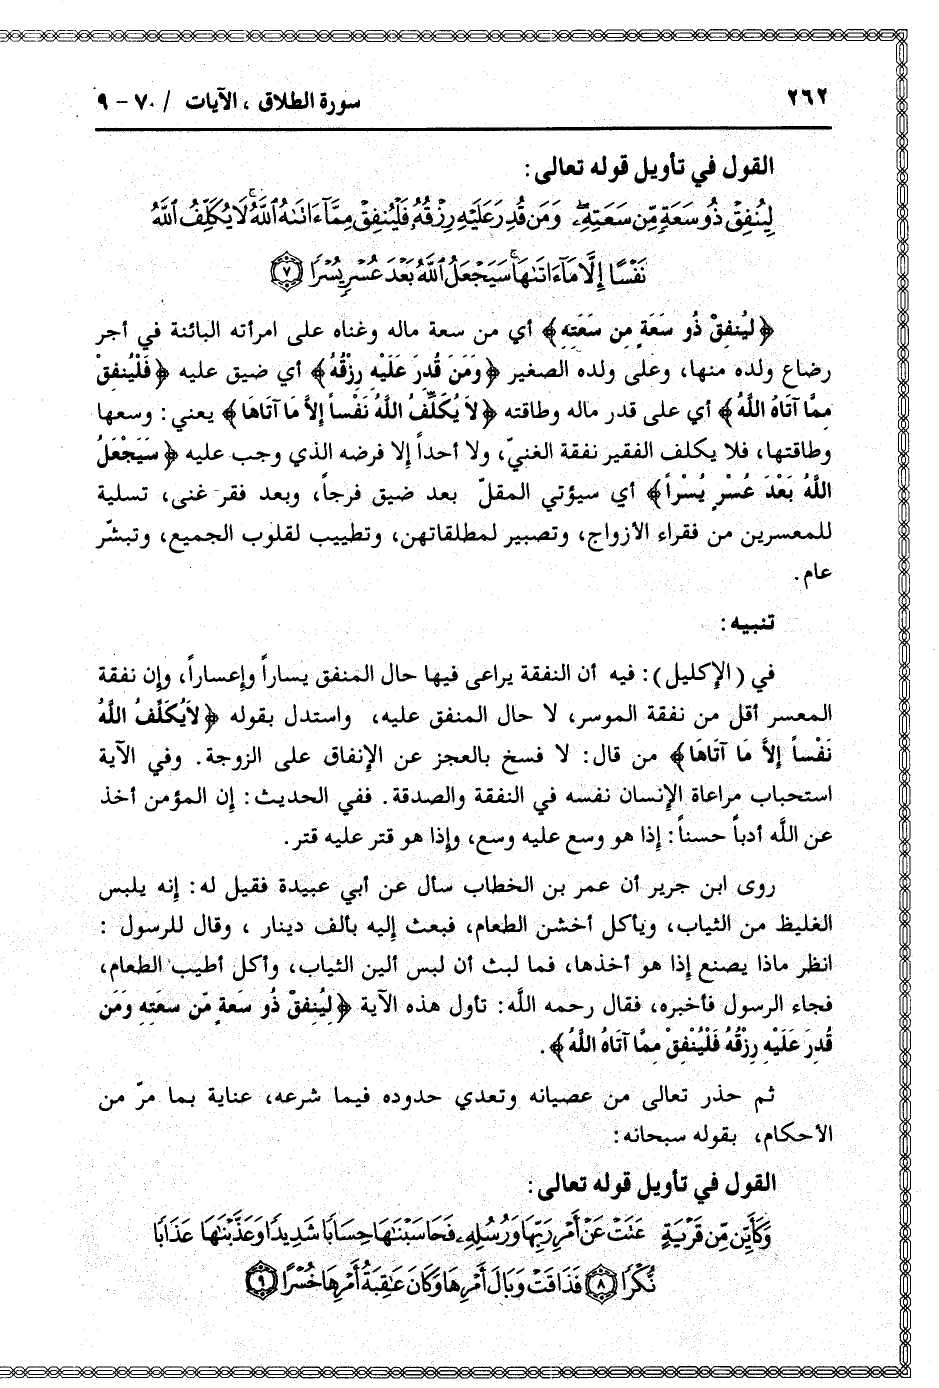 ٢٦٢
سورة الطلاق ، الآيات / ٧٠ – ٩
القول في تأويل قوله تعالى:
لِيُنفِقْ ذُو سَعَةٍ مِّن سَعَتِهِۦ وَمَن قُدِرَ عَلَيْهِ رِزْقُهُۥ فَلْيُنفِقْ مِمَّآ ءَاتَىٰهُ ٱللَّهُ لَا يُكَلِّفُ ٱللَّهُ
نَفْسًا إِلَّا مَآ ءَاتَىٰهَا سَيَجْعَلُ ٱللَّهُ بَعْدَ عُسْرٍ يُسْرًا ﴿٧﴾
﴿لِيُنفِقْ ذُو سَعَةٍ مِن سَعَتِهِ﴾ أي من سعة ماله وغناه على امرأته البائنة في أجر
رضاع ولده منها، وعلى ولده الصغير ﴿وَمَنَ قُدِرَ عَلَيْهِ رِزْقُهُ﴾ أي ضيق عليه ﴿فَلْيُنفِقْ
مِمَّا آتَاهُ اللَّهُ﴾ أي على قدر ماله وطاقته ﴿لاَ يُكَلِّفُ اللَّهُ نَفْساً إِلاَّ مَا آتَاهَا﴾ يعني: وسعها
وطاقتها، فلا يكلف الفقير نفقة الغنيّ، ولا أحداً إلا فرضه الذي وجب عليه ﴿سَيَجْعَلُ
اللَّهُ بَعْدَ عُسْرٍ يُسْراً﴾ أي سيؤتي المقلّ بعد ضيق فرجاً، وبعد فقر غنى، تسلية
للمعسرين من فقراء الأزواج، وتصبير لمطلقاتهن، وتطييب لقلوب الجميع، وتبشّر
عام.
تنبيه:
في (الإكليل): فيه أن النفقة يراعى فيها حال المنفق يساراً وإعساراً، وإن نفقة
المعسر أقل من نفقة الموسر، لا حال المنفق عليه، واستدل بقوله ﴿لاَيُكَلِّفُ اللَّهُ
نَفْساً إِلاَّ مَا آتَاهَا﴾ من قال: لا فسخ بالعجز عن الإنفاق على الزوجة. وفي الآية
استحباب مراعاة الإنسان نفسه في النفقة والصدقة. ففي الحديث: إن المؤمن أخذ
عن اللَّه أدباً حسناً: إذا هو وسع عليه وسع، وإذا هو قتر عليه قتر.
روى ابن جرير أن عمر بن الخطاب سأل عن أبي عبيدة فقيل له: إنه يلبس
الغليظ من الثياب، ويأكل أخشن الطعام، فبعث إليه بألف دينار ، وقال للرسول :
انظر ماذا يصنع إذا هو أخذها، فما لبث أن لبس ألين الثياب، وأكل أطيب الطعام،
فجاء الرسول فأخبره، فقال رحمه اللَّه: تأول هذه الآية ﴿لِيُنفِقْ ذُو سَعةٍ مّن سعَتِهِ وَمَن
قُدِرَ عَلَيْهِ رِزْقُهُ فَلْيُنْفِقْ مِمَّا آتَاهُ اللَّهُ﴾.
ثم حذر تعالى من عصيانه وتعدي حدوده فيما شرعه، عناية بما مرّ من
الأحكام، بقوله سبحانه:
القول في تأويل قوله تعالى:
وَكَأَيِّن مِّن قَرْيَةٍ عَتَتْ عَنْ أَمْرِ رَبِّهَا وَرُسُلِهِۦ فَحَاسَبْنَٰهَا حِسَابًا شَدِيدًا وَعَذَّبْنَٰهَا عَذَابًا
نُّكْرًا ﴿٨﴾ فَذَاقَتْ وَبَالَ أَمْرِهَا وَكَانَ عَٰقِبَةُ أَمْرِهَا خُسْرًا ﴿٩﴾